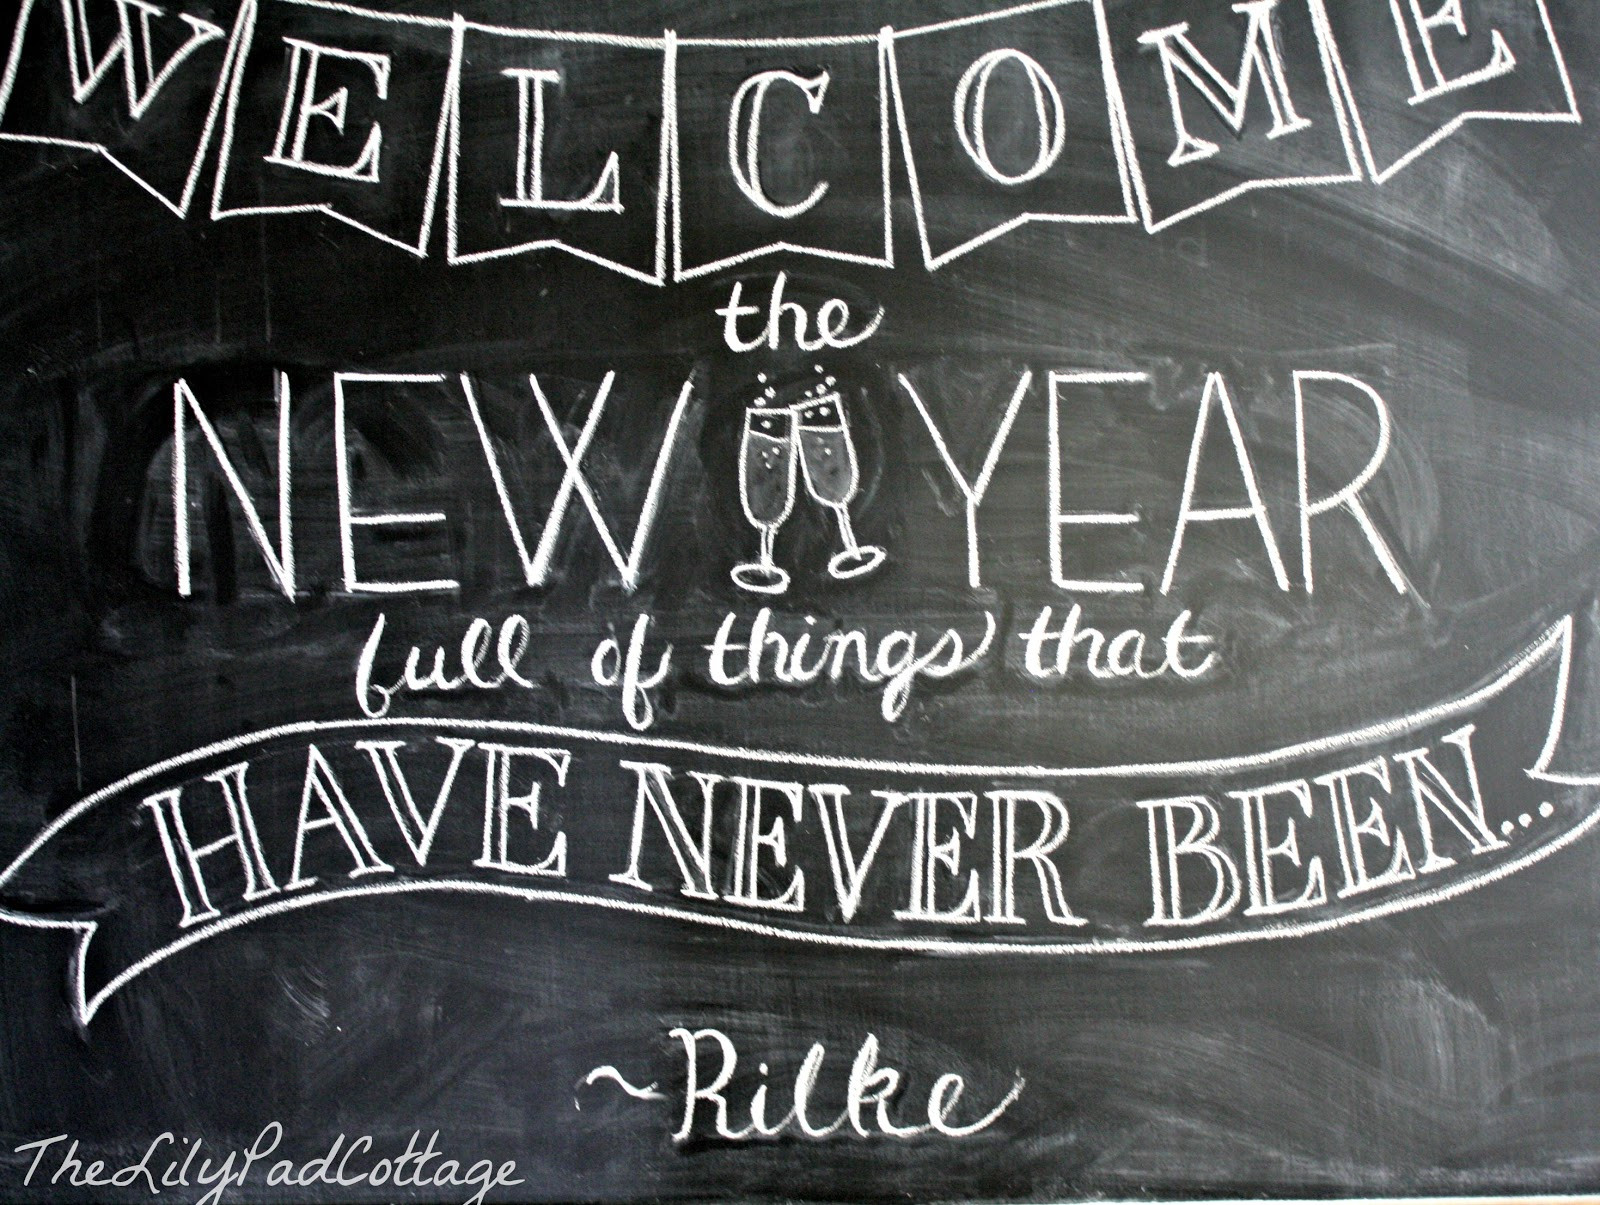 WELCOME
the
NEW YEAR
full of things that
HAVE NEVER BEEN...
~Rilke
TheLilyPadCottage